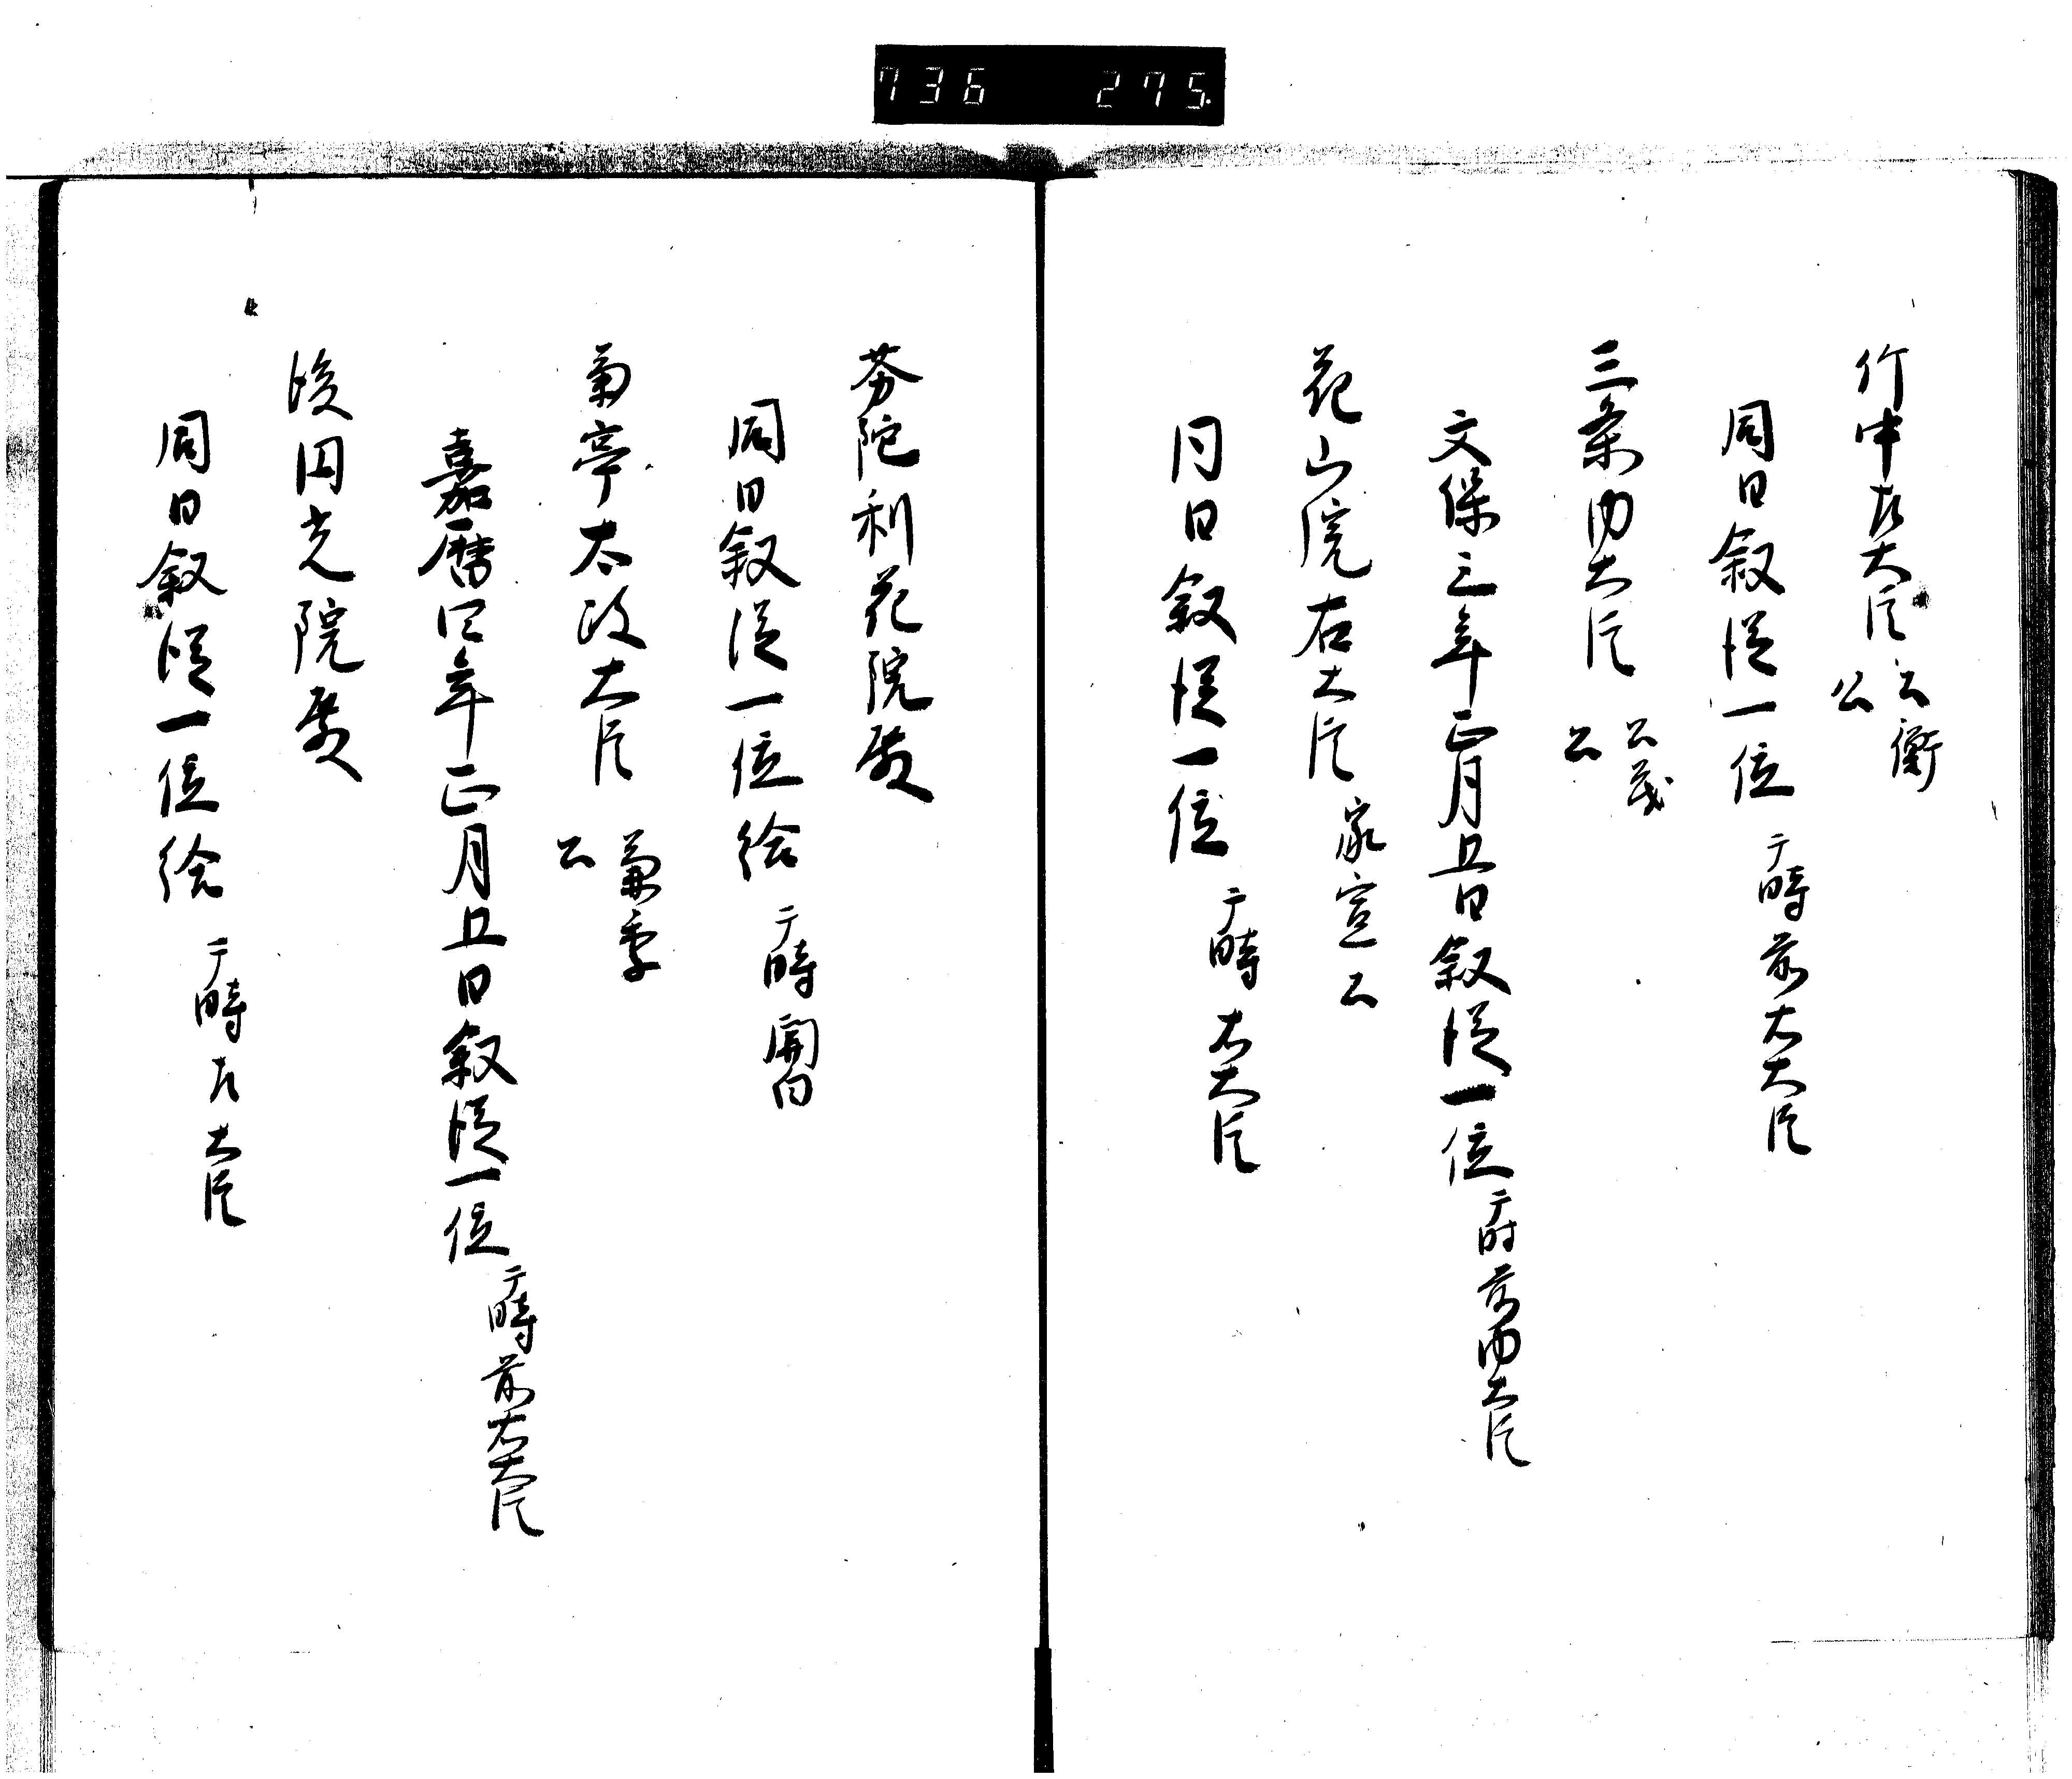 736 275
竹中左大臣 公衡公
同日叙従一位 于時前左大臣
三条内大臣 公茂公
文保三年正月五日叙従一位 于時前内大臣
花山院右大臣 家定公
同日叙従一位 于時右大臣
芬陀利花院殿
同日叙従一位給 于時関白
菊亭太政大臣 兼季公
嘉暦四年正月五日叙従一位 于時前右大臣
後円光院殿
同日叙従一位給 于時左大臣